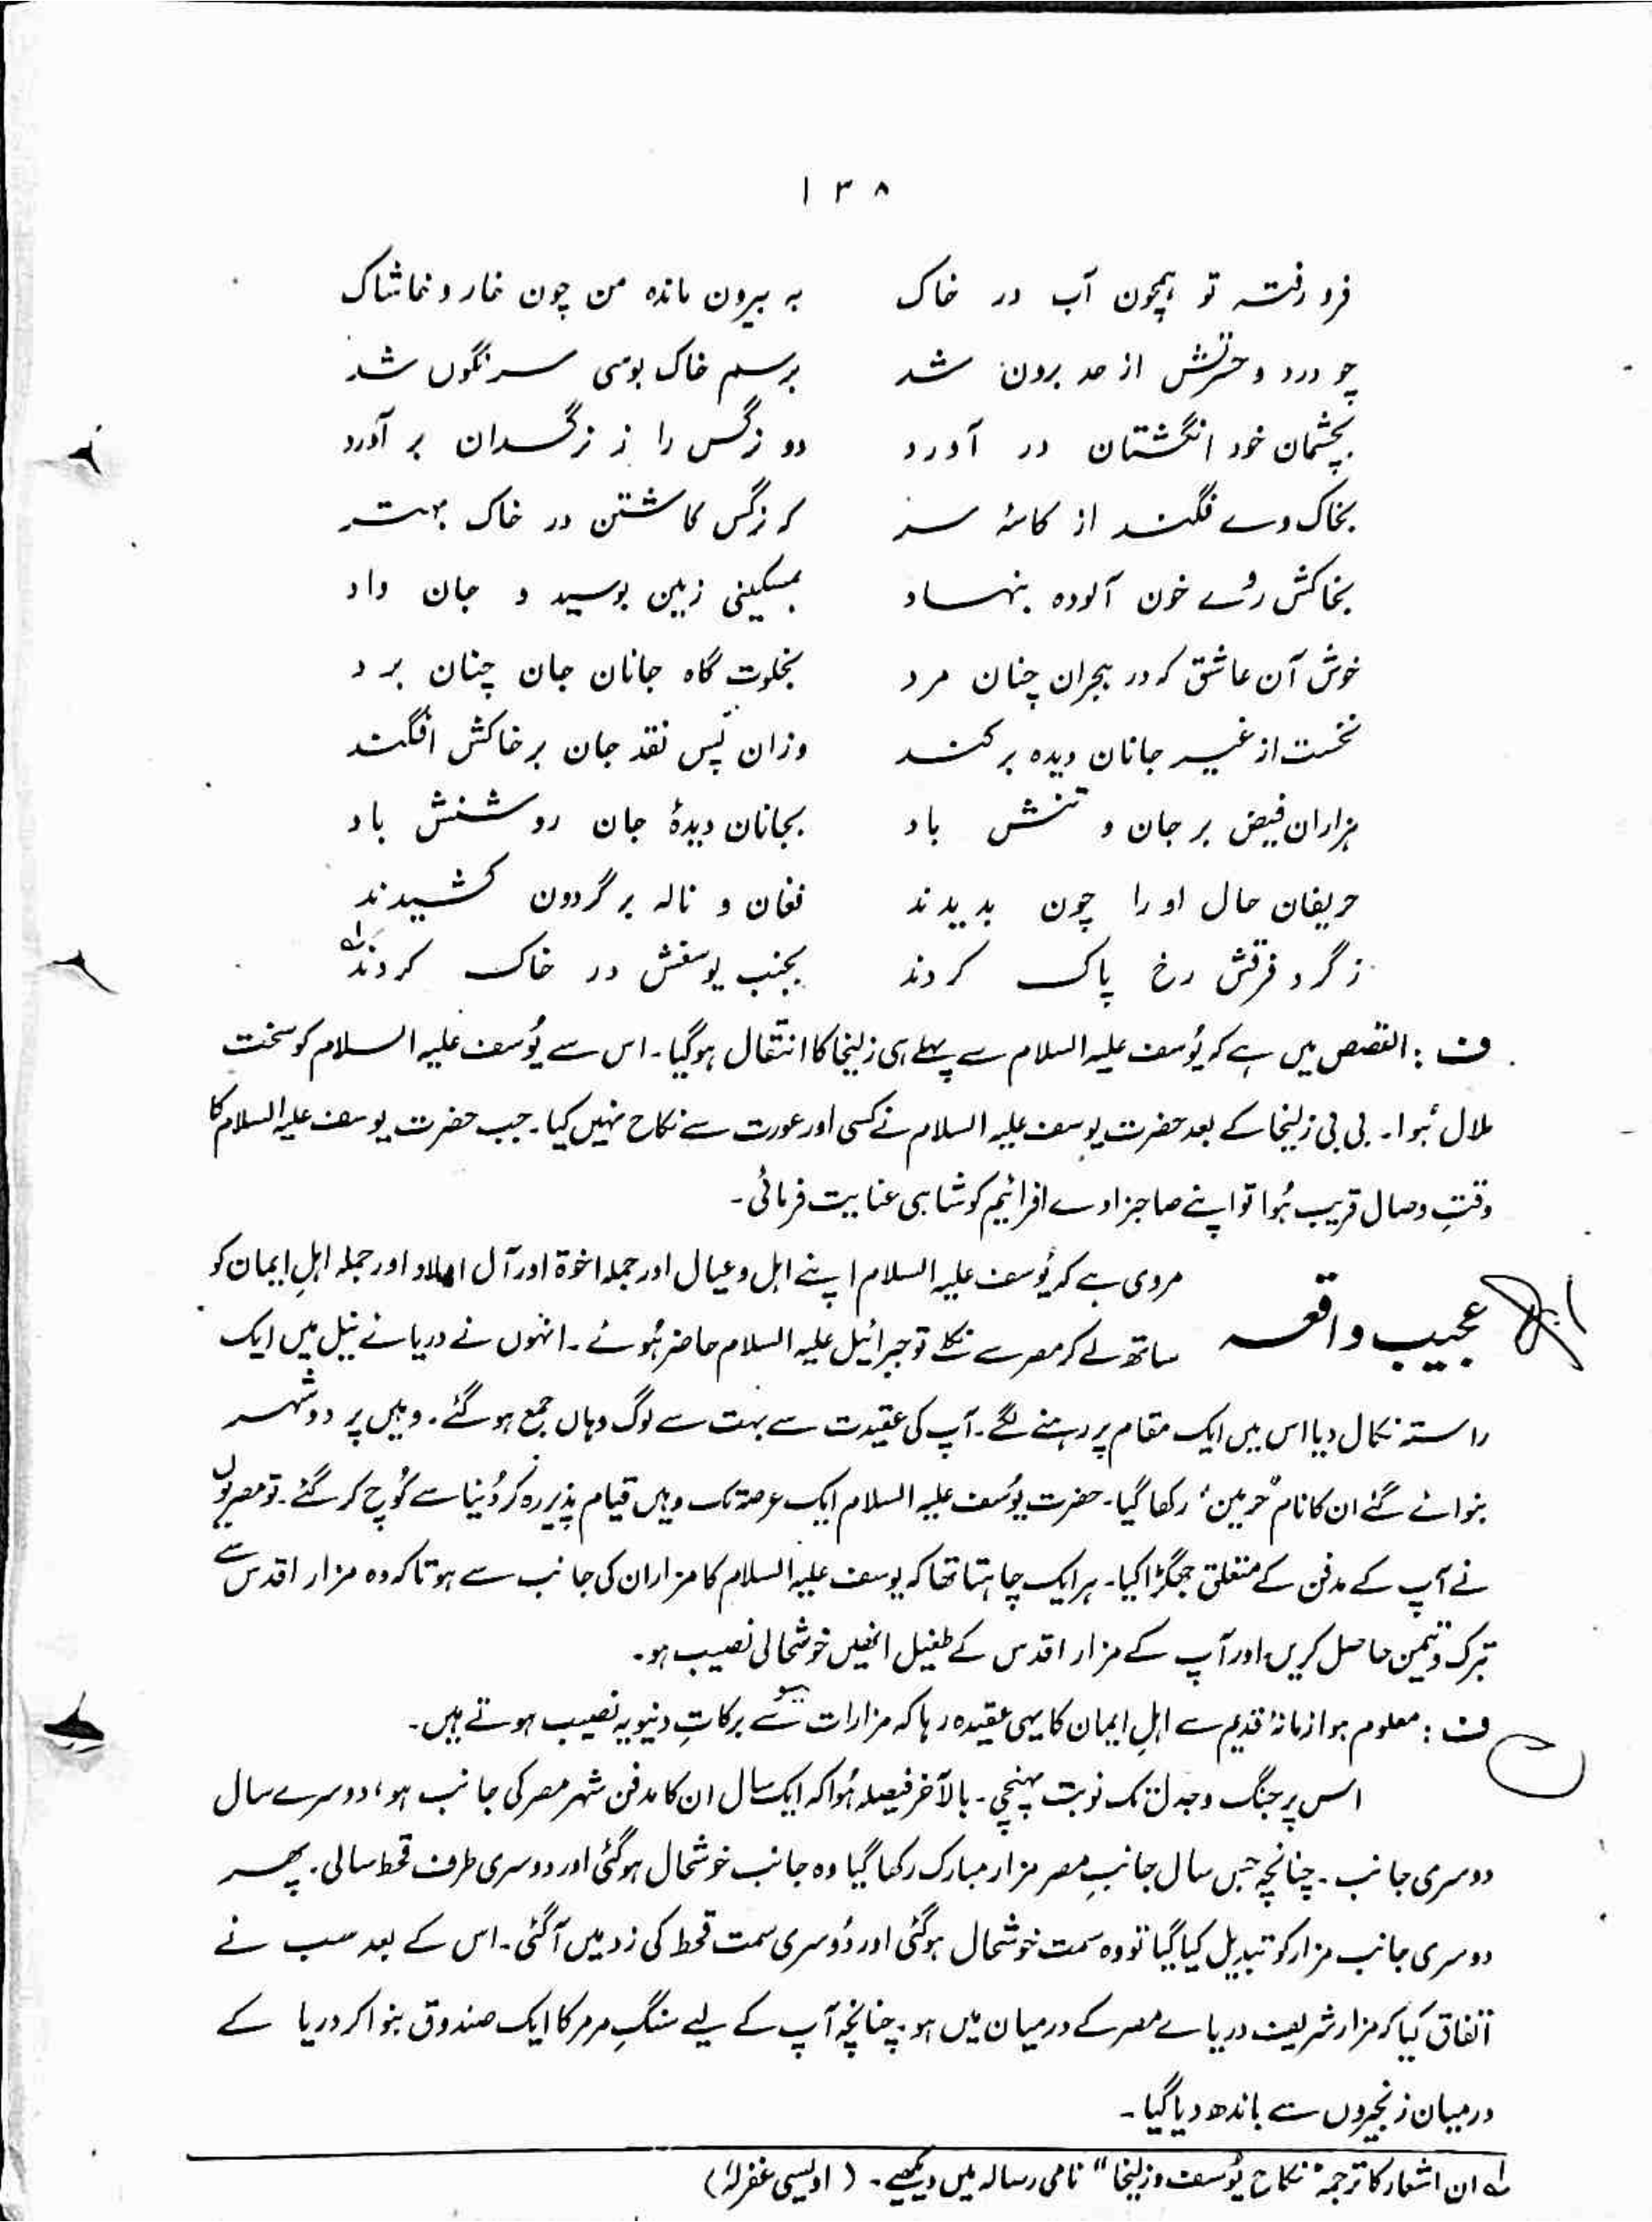 ۱۳۸
فرو رفتہ تو ہمچون آب در خاک بہ بیرون ماندہ من چون خار و خاشاک
چو درد و حسرتش از حد برون شد برسم خاک بوسی سرنگوں شد
بچشمان خود انگشتان در آورد دو نرگس را ز نرگسدان بر آورد
بخاک وے فگند از کاسۂ سر کہ نرگس کاشتن در خاک بہتر
بخاکش روے خون آلودہ بنہاد بمسکینی زمین بوسید و جان داد
خوش آن عاشق کہ در ہجران چنان مرد بخلوت گاہ جانان جان چنان برد
نخست از غیر جانان دیدہ برکند وزان پس نقد جان بر خاکش افگند
ہزاران فیض بر جان و تنش باد بجانان دیدۂ جان روشنش باد
حریفان حال او را چون بدیدند فغان و نالہ بر گردون کشیدند
ز گرد فرقتش رخ پاک کردند بجنب یوسفش در خاک کردند لہ
ف : القصص میں ہے کہ یُوسف علیہ السلام سے پہلے ہی زلیخا کا انتقال ہوگیا۔ اس سے یُوسف علیہ السلام کو سخت
ملال ہُوا۔ بی بی زلیخا کے بعد حضرت یوسف علیہ السلام نے کسی اور عورت سے نکاح نہیں کیا۔ جب حضرت یوسف علیہ السلام کا
وقتِ وصال قریب ہُوا تو اپنے صاحبزادے افرائیم کو شاہی عنایت فرمائی۔
مروی ہے کہ یُوسف علیہ السلام اپنے اہل و عیال اور جملہ اخوۃ اور آل اولاد اور جملہ اہلِ ایمان کو
عجیب واقعہ ساتھ لے کر مصر سے نکلے تو جبرائیل علیہ السلام حاضر ہُوئے۔ انہوں نے دریائے نیل میں ایک
راستہ نکال دیا اس میں ایک مقام پر رہنے لگے۔ آپ کی عقیدت سے بہت سے لوگ وہاں جمع ہو گئے۔ وہیں پر دو شہر
بنوائے گئے ان کا نام "حرمین" رکھا گیا۔ حضرت یُوسف علیہ السلام ایک عرصہ تک وہیں قیام پذیر رہ کر دُنیا سے کُوچ کر گئے۔ تو مصریوں
نے آپ کے مدفن کے متعلق جھگڑا کیا۔ ہر ایک چاہتا تھا کہ یوسف علیہ السلام کا مزار ان کی جانب سے ہو تاکہ وہ مزار اقدس سے
تبرک و تیمن حاصل کریں اور آپ کے مزار اقدس کے طفیل انھیں خوشحالی نصیب ہو۔
ف : معلوم ہوا زمانۂ قدیم سے اہلِ ایمان کا یہی عقیدہ رہا کہ مزارات سے برکاتِ دنیویہ نصیب ہوتے ہیں۔
اس پر جنگ و جدل تک نوبت پہنچی۔ بالآخر فیصلہ ہُوا کہ ایک سال ان کا مدفن شہر مصر کی جانب ہو، دوسرے سال
دوسری جانب۔ چنانچہ جس سال جانبِ مصر مزار مبارک رکھا گیا وہ جانب خوشحال ہوگئی اور دوسری طرف قحط سالی۔ پھر
دوسری جانب مزار کو تبدیل کیا گیا تو وہ سمت خوشحال ہوگئی اور دُوسری سمت قحط کی زد میں آگئی۔ اس کے بعد سب نے
اتفاق کیا کہ مزار شریف دریاے مصر کے درمیان میں ہو۔ چنانچہ آپ کے لیے سنگِ مرمر کا ایک صندوق بنوا کر دریا کے
درمیان زنجیروں سے باندھ دیا گیا۔
لہ ان اشعار کا ترجمہ "نکاح یُوسف و زلیخا" نامی رسالہ میں دیکھیے۔ (اویسی غفرلہٗ)